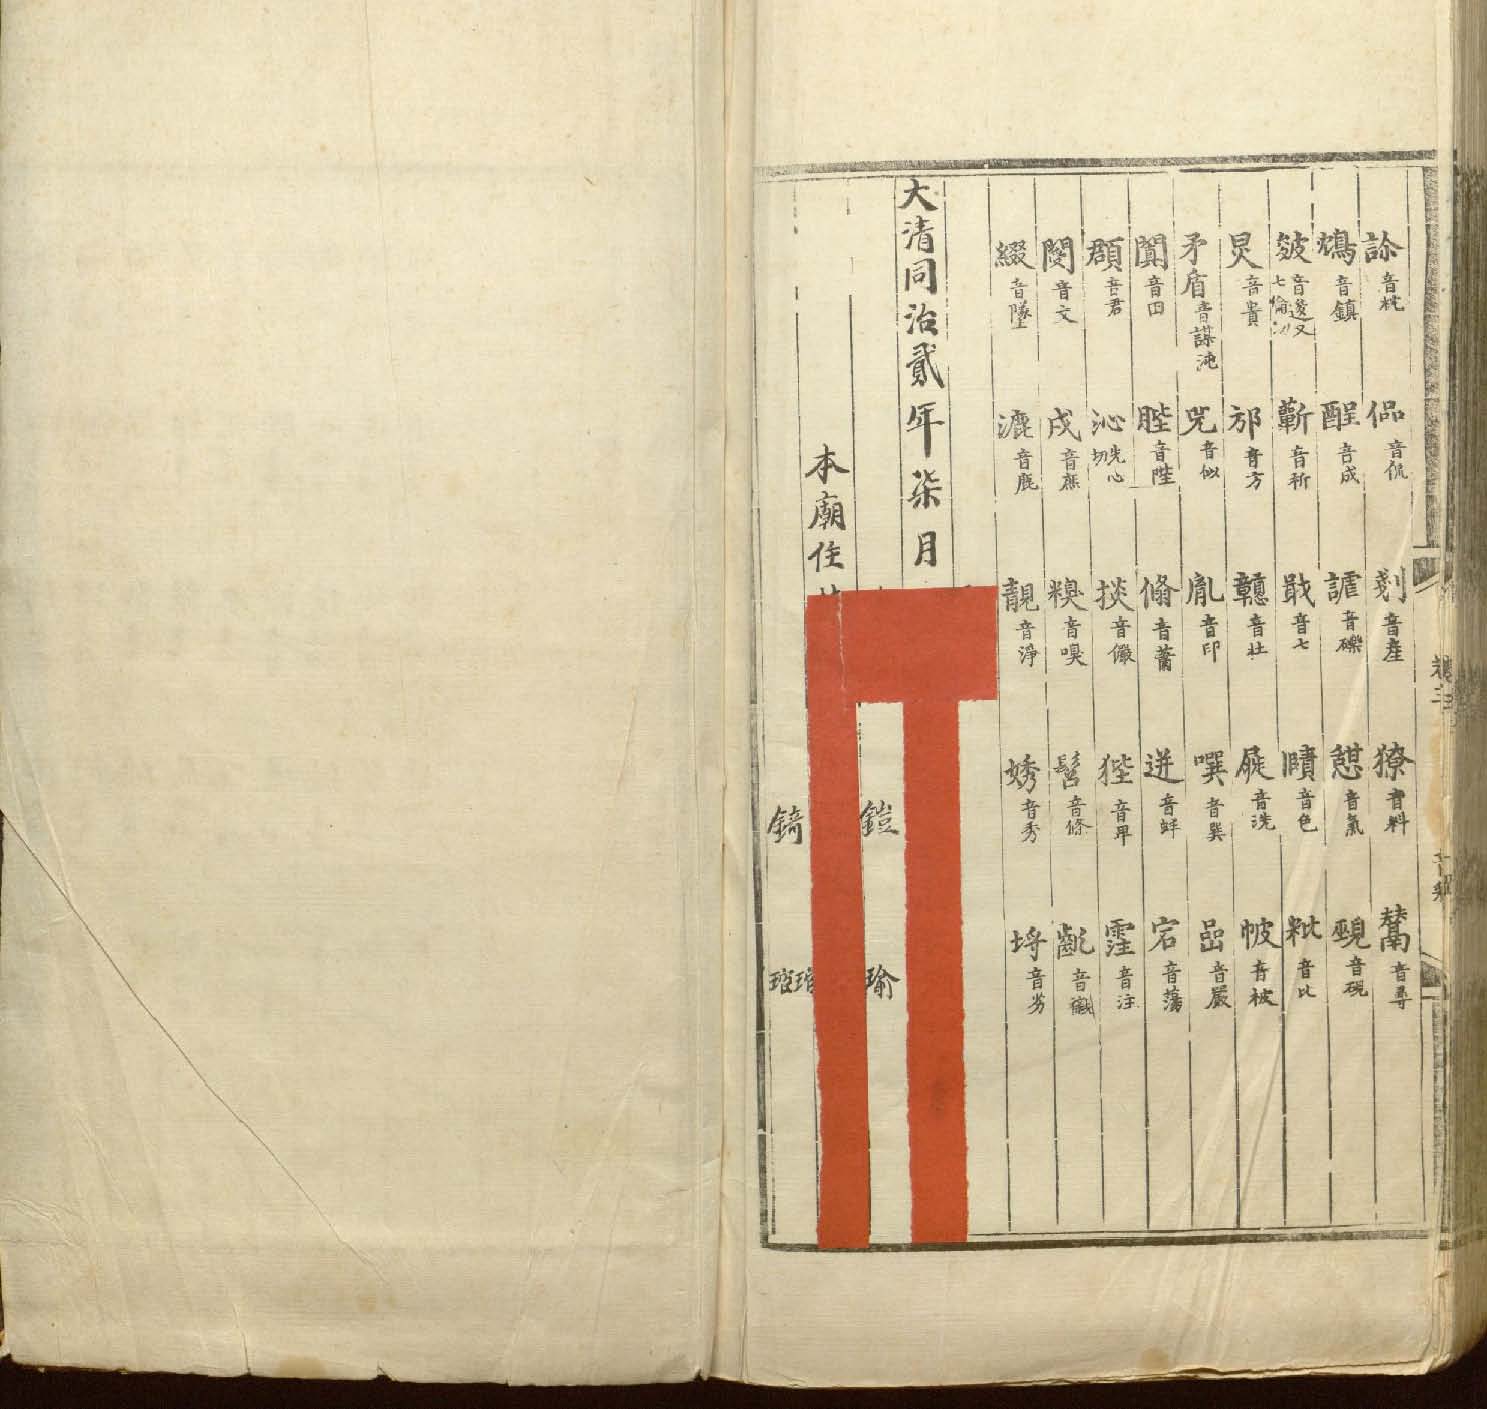 診 音枕 侃 音侃 剗 音產 獠 音料 鬵 音尋
鴆 音鎮 酲 音成 謔 音礫 憇 音氣 晛 音硯
皴 音逡又七倫切 蘄 音祈 戢 音七 賾 音色 粃 音比
炅 音貴 邡 音方 屣 音洗 帔 音被
矛盾 音謀沌 兕 音似 胤 音印 噀 音巽 嵒 音嚴
闐 音田 陛 音陛 翛 音蕭 迸 音蚌 宕 音蕩
頵 音君 沁 先心切 掞 音儼 狴 音畢 霔 音注
閿 音文 糗 音嗅 髫 音條
綴 音墜 漉 音鹿 靚 音淨 㛢 音秀 埒 音劣
大清同治貳年柒月
鎧 瑜
本廟住
錡